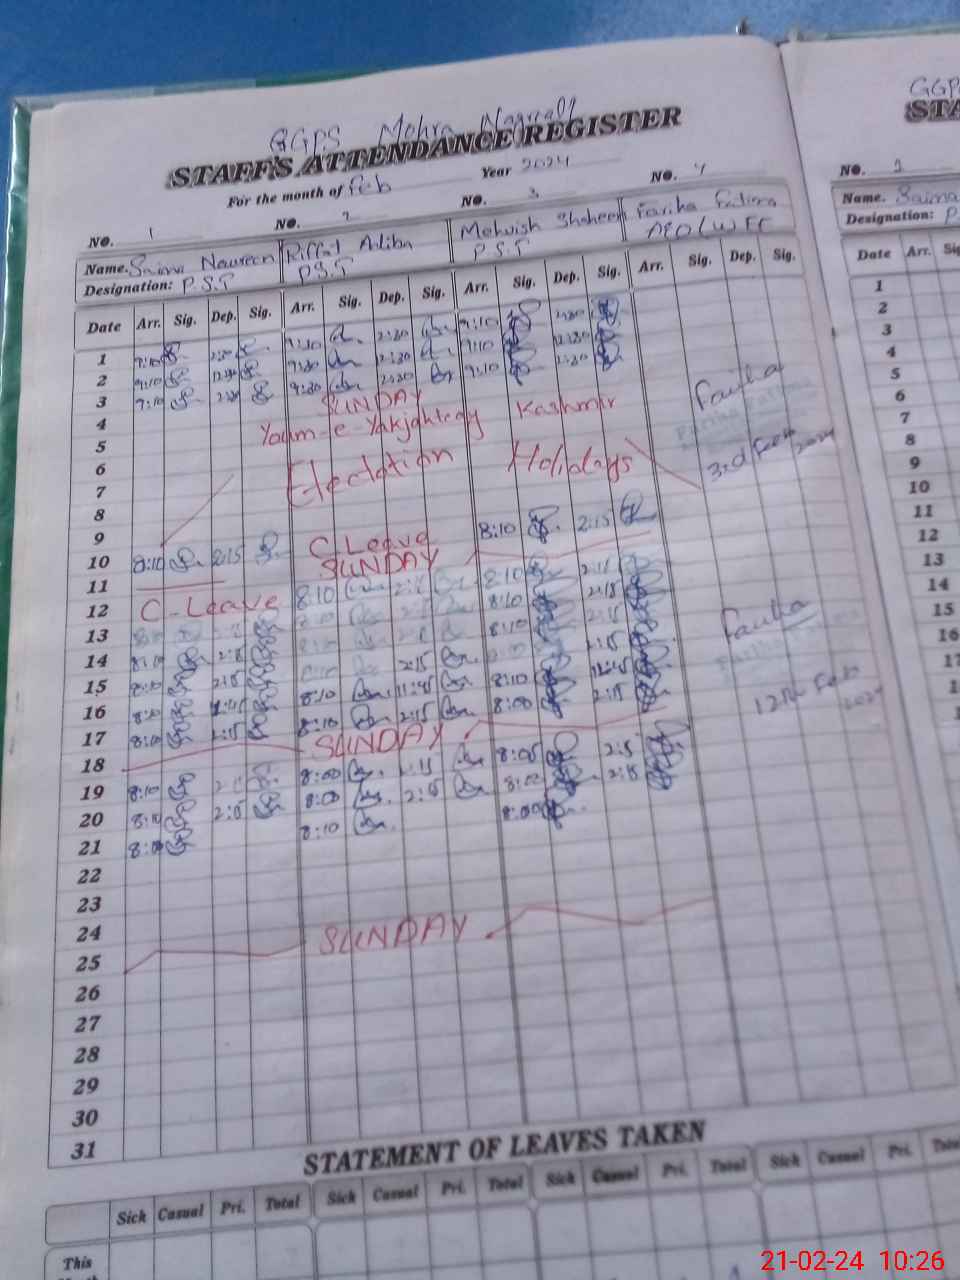 GGPS Mohra Nagreall
STAFF'S ATTENDANCE REGISTER
For the month of Feb Year 2024
NO. 1 NO. 2 NO. 3 NO. 4
Name. Saima Nowreen Riffat Adiba Mehwish Shaheen Fariha Fatima
Designation: P.S.T P.S.T P.S.T AEO(WEE
Date Arr. Sig. Dep. Sig. Arr. Sig. Dep. Sig. Arr. Sig. Dep. Sig. Arr. Sig. Dep. Sig.
1 9:10 2:30 9:10 2:30 9:10 2:30
2 9:10 12:30 9:30 2:30 9:10 12:30
3 9:10 2:30 9:30 2:30 9:10 2:30
4 SUNDAY
5 Youm-e-Yakjahteay Kashmir Fariha
6 Fariha Fatima
7 Election Holidays 3rd Feb 2024
8
9
10 8:10 2:15 C Leave 8:10 2:15
11 SUNDAY
12 C-Leave 8:10 2:15 8:10 2:15
13 8:10 8:10 8:10 2:15
14 8:10 2:15 8:10 2:15 Fariha
15 8:10 2:15 2:15 2:15 Fariha Fatima
16 8:10 8:10 11:45 8:10 12:45
17 8:10 2:15 8:10 2:15 8:00 2:15 12th Feb 2024
18 SUNDAY
19 8:10 8:00 2:15 8:05 2:15
20 8:10 2:15 8:00 2:15 8:00 2:15
21 8:00 8:10 8:00
22
23
24
25 SUNDAY
26
27
28
29
30
31
STATEMENT OF LEAVES TAKEN
Sick Casual Pri. Total Sick Casual Pri. Total Sick Casual Pri. Total Sick Casual Pri. Total
This
GGPS
STA
NO. 1
Name. Saima
Designation: P
Date Arr. Sig
1
2
3
4
5
6
7
8
9
10
11
12
13
14
15
16
17
21-02-24 10:26